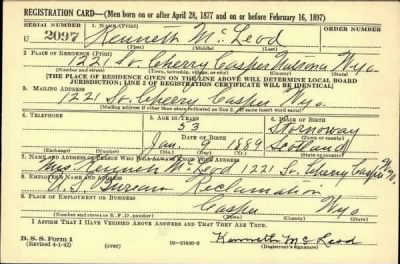 REGISTRATION CARD—(Men born on or after April 28, 1877 and on or before February 16, 1897)
SERIAL NUMBER 1. NAME (Print) ORDER NUMBER
U 2097 Kenneth Mc Leod
(First) (Middle) (Last)
2. PLACE OF RESIDENCE (Print)
1221 So. Cherry Casper Natrona Wyo.
(Number and street) (Town, township, village, or city) (County) (State)
[THE PLACE OF RESIDENCE GIVEN ON THE LINE ABOVE WILL DETERMINE LOCAL BOARD
JURISDICTION; LINE 2 OF REGISTRATION CERTIFICATE WILL BE IDENTICAL]
3. MAILING ADDRESS
1221 So. Cherry Casper Wyo.
[Mailing address if other than place indicated on line 2. If same insert word same]
4. TELEPHONE 5. AGE IN YEARS 6. PLACE OF BIRTH
53 Stornoway
DATE OF BIRTH (Town or county)
Jan. 9 1889 Scotland
(Exchange) (Number) (Mo.) (Day) (Yr.) (State or country)
7. NAME AND ADDRESS OF PERSON WHO WILL ALWAYS KNOW YOUR ADDRESS
Mrs. Kenneth Mc Leod 1221 So. Cherry Casper Wyo.
8. EMPLOYER'S NAME AND ADDRESS
U.S. Bureau Reclamation
9. PLACE OF EMPLOYMENT OR BUSINESS
Casper Wyo
(Number and street or R. F. D. number) (Town) (County) (State)
I AFFIRM THAT I HAVE VERIFIED ABOVE ANSWERS AND THAT THEY ARE TRUE.
D. S. S. Form 1
(Revised 4-1-42) (over) 16—21630-2 Kenneth Mc Leod
(Registrant's signature)